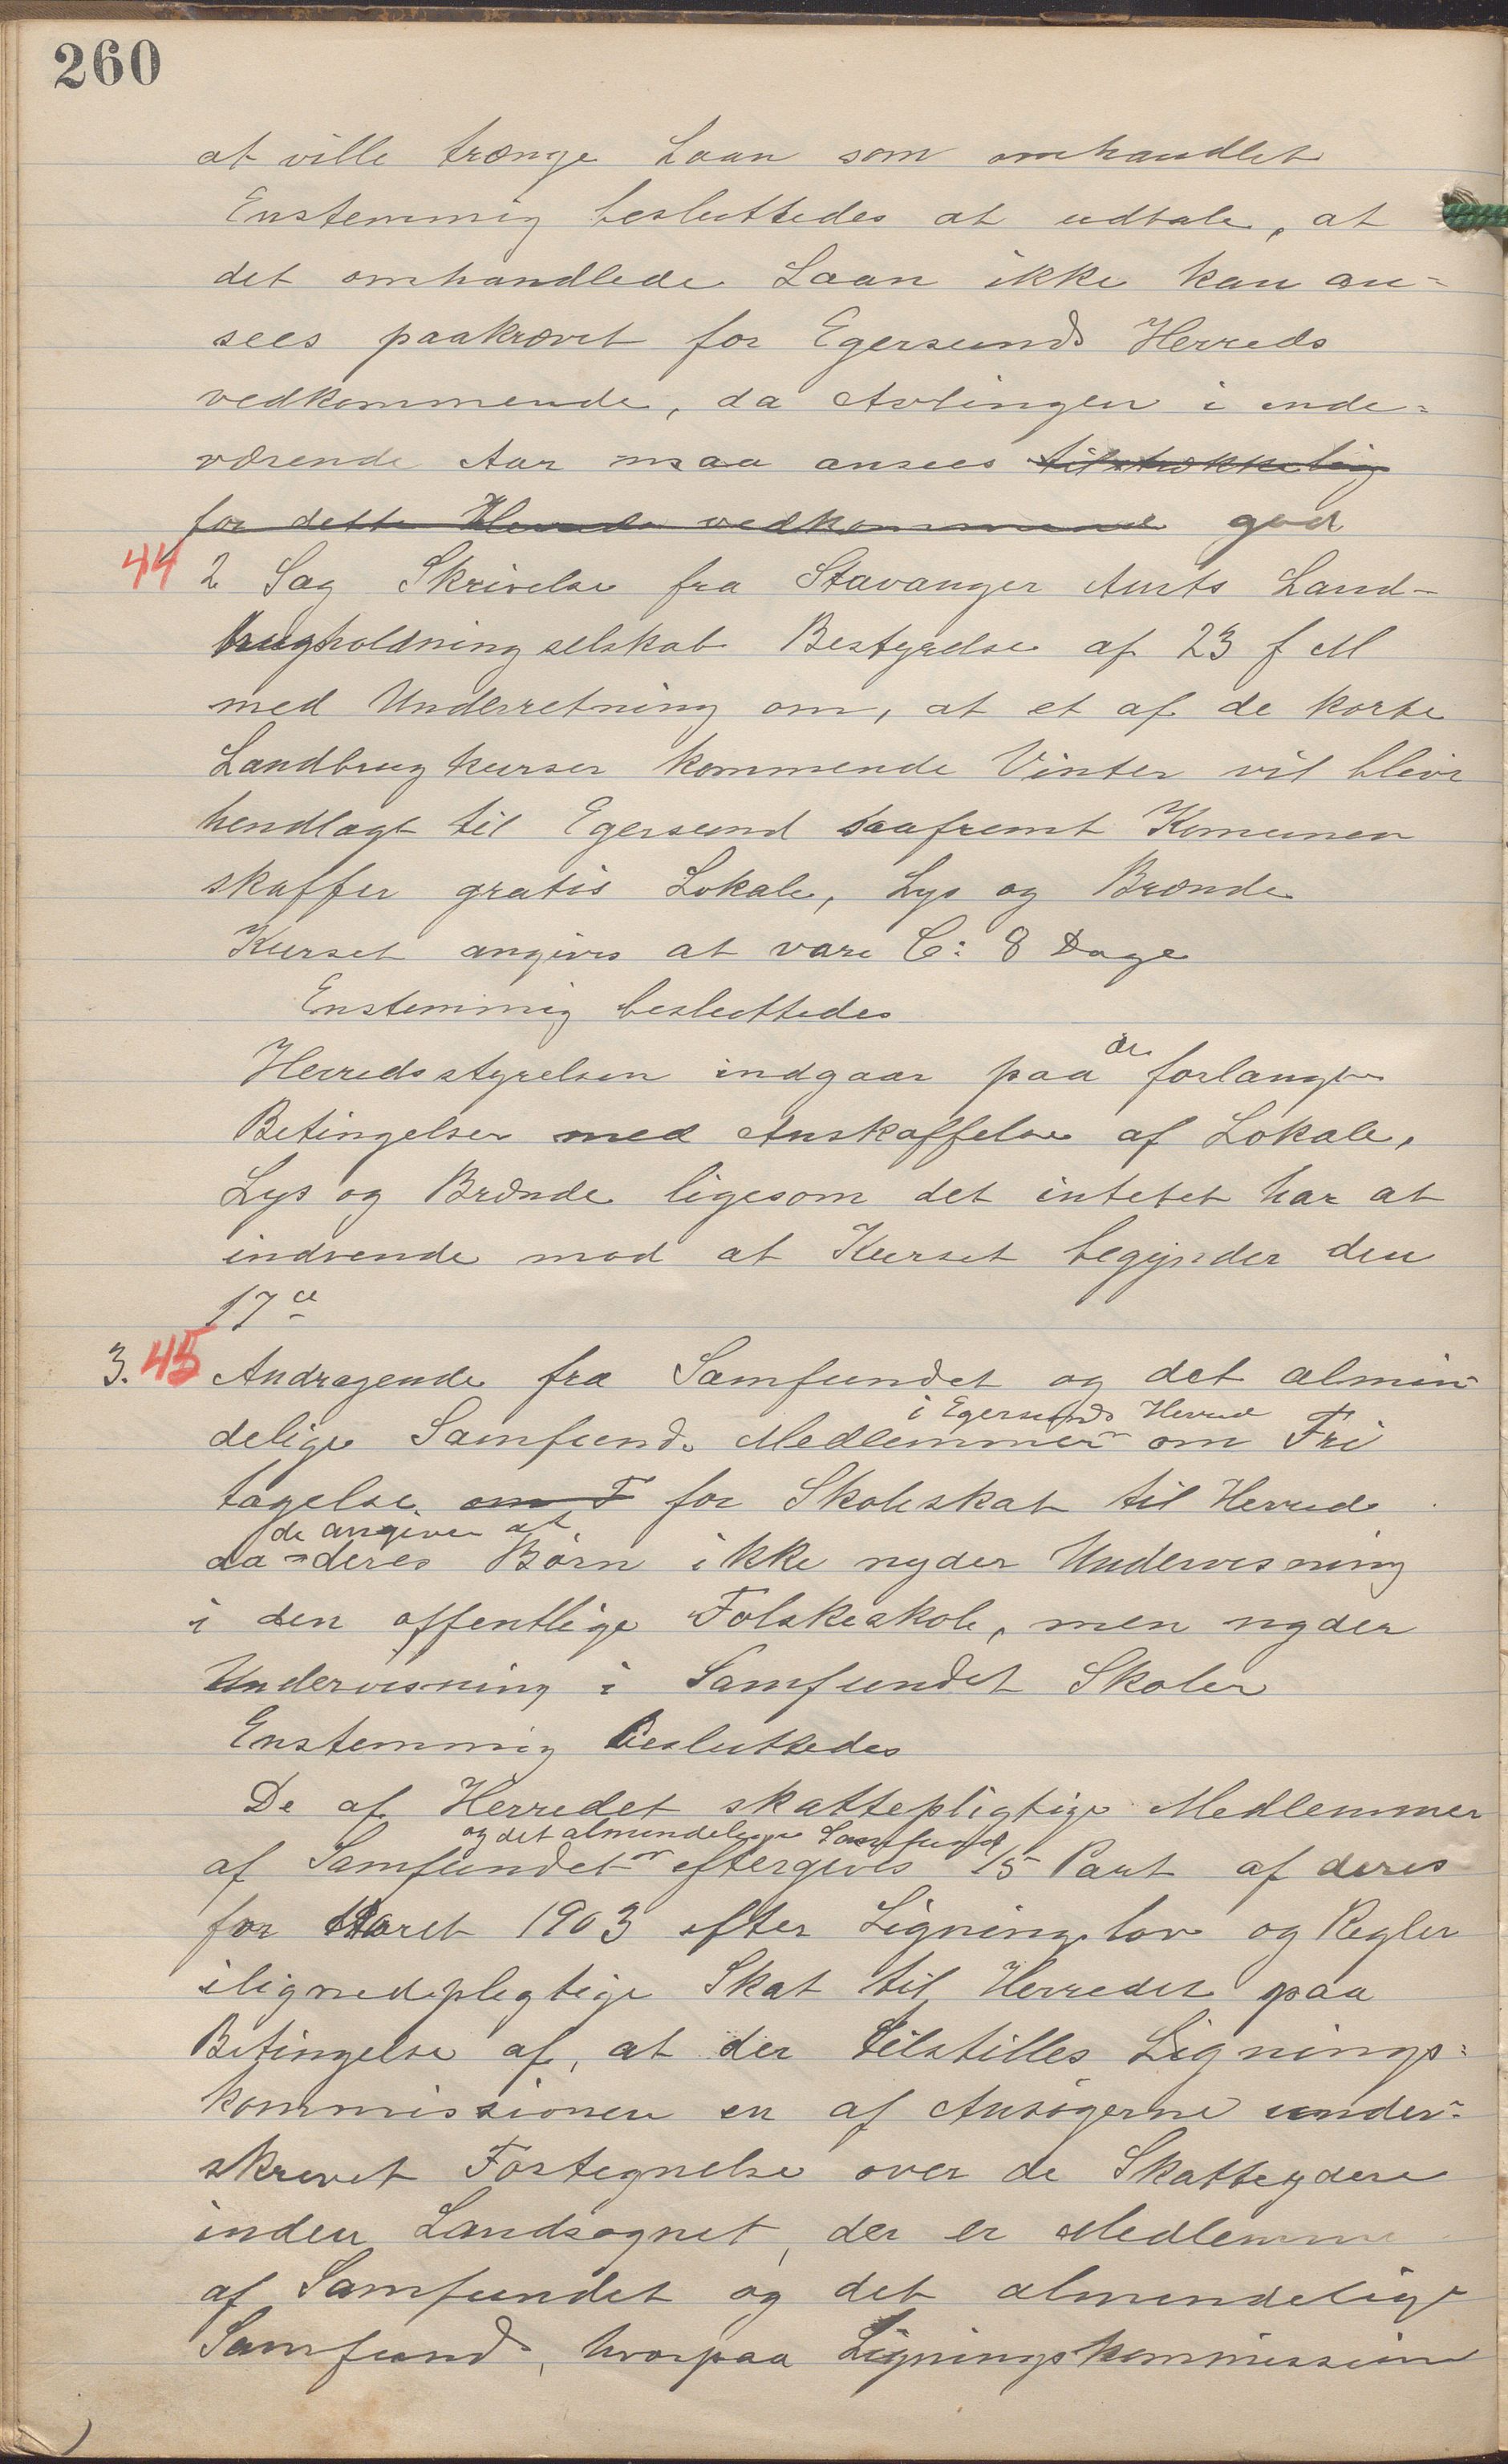 260
at ville trænge Laan som omhandlet
Enstemmig besluttedes at udtale, at
det omhandlede Laan ikke kan an-
sees paakrævet for Egersunds Herreds
vedkommende, da Avlingen i inde-
værende Aar maa ansees tilstrækkelig
for dette Herreds vedkommende god
44 2 Sag Skrivelse fra Stavanger Amts Land-
brugholdningselskab Bestyrelse af 23 f M
med Underretning om, at et af de korte
Landbrugkurser kommende Vinter vil blive
hendlagt til Egersund saafremt Komunen
skaffer gratis Lokale, Lys og Brænde
Kurset angives at vare C: 8 Dage
Enstemmig besluttedes
Herredsstyrelsen indgaar paa de forlangte
Betingelser med Anskaffelse af Lokale,
Lys og Brænde ligesom det intetet har at
indvende mod at Kurset begynder den
17de
3. 45 Andragende fra Samfundet og det almin-
i Egersunds Herred
delige Samfunds Medlemmer om Fri
tagelse om F for Skoleskat til Herred
de angiver at
da deres Børn ikke nyder Undervisning
i den offentlige Folskeskole, men nyder
Undervisning i Samfundet Skoler
Enstemmig besluttedes
De af Herredet skattepligtige Medlemmer
og det almindelige Samfund
af Samfundet eftergives 1/5 Part af deres
for Aaret 1903 efter Ligningslov og Regler
ilignedeplegtige Skat til Herredet paa
Betingelse af, at der tilstilles Lignings-
kommissionen en af Ansøgerne under-
skrevet Fortegnelse over de Skatteydere
inden Landsognet, der er Medlemme
af Samfundet og det almendelige
Samfund, hvorpaa Ligningskommission